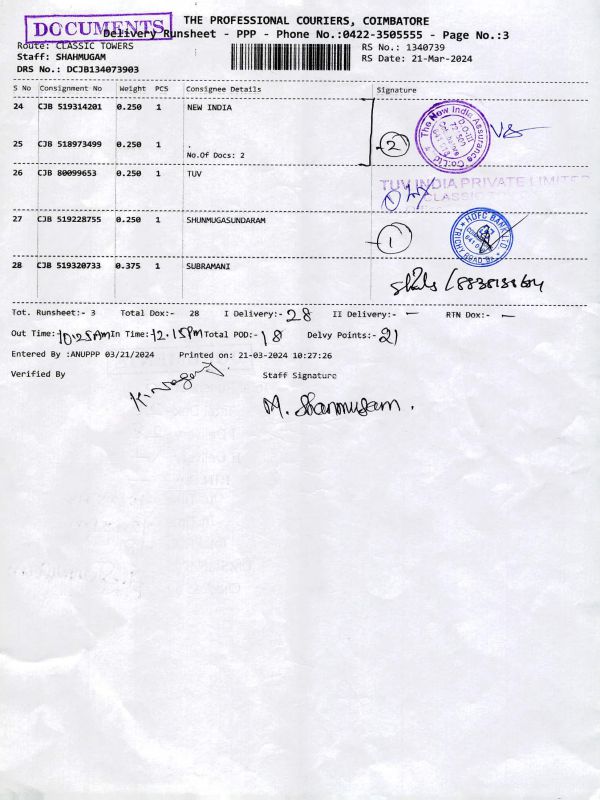 DOCUMENTS
THE PROFESSIONAL COURIERS, COIMBATORE
Delivery Runsheet - PPP - Phone No.:0422-3505555 - Page No.:3
Route: CLASSIC TOWERS
RS No.: 1340739
Staff: SHAHMUGAM
RS Date: 21-Mar-2024
DRS No.: DCJB134073903
S No Consignment No Weight PCS Consignee Details Signature
24 CJB 519314201 0.250 1 NEW INDIA
The New India Assurance Co. Ltd.
2
25 CJB 518973499 0.250 1 .
No.Of Docs: 2
26 CJB 80099653 0.250 1 TUV
TUV INDIA PRIVATE LIMITED
CLASSIC
1
27 CJB 519228755 0.250 1 SHUNMUGASUNDARAM
HDFC BANK LTD
TRICHY ROAD BR.
1
28 CJB 519320733 0.375 1 SUBRAMANI
Tot. Runsheet:- 3 Total Dox:- 28 I Delivery:- 28 II Delivery:- — RTN Dox:- —
Out Time: 10.25AM In Time: 12.15PM Total POD:- 18 Delvy Points:- 21
Entered By :ANUPPP 03/21/2024 Printed on: 21-03-2024 10:27:26
Verified By Staff Signature
M. Shanmugam.